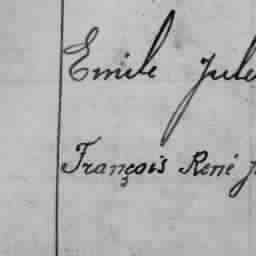 Emile Jule
François René